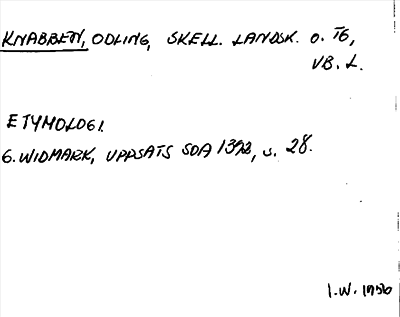 KNABBEN, ODLING, SKELL. LANDSK. O. TG,
VB. L.
ETYMOLOGI.
G. WIDMARK, UPPSATS SOA 1392, s. 28.
I.W. 1956